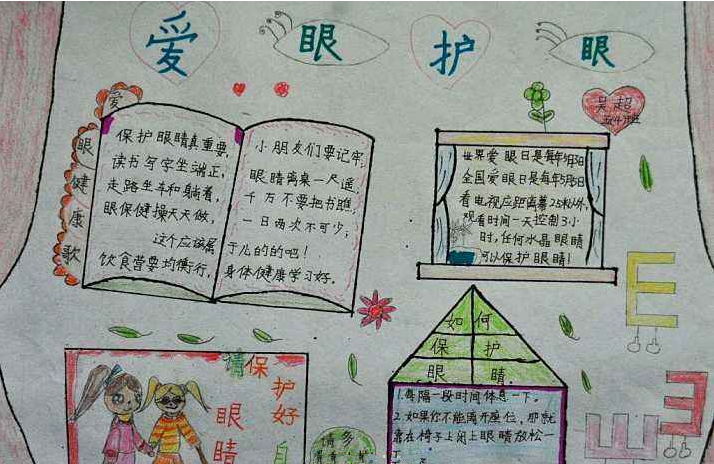 爱眼护眼
吴超
爱眼健康歌
保护眼睛真重要,
读书写字坐端正,
走路坐车和躺着,
眼保健操天天做,
这个应该属
饮食营要均衡行,
小朋友们要记牢,
眼睛离桌一尺遥,
千万不要把书瞧,
一日两次不可少,
于儿的的吧!
身体健康学习好。
世界爱眼日是每年
全国爱眼日是每年
看电视应距离幕2.5米以外,
观看时间一天控制3小
时,任何水晶眼睛
可以保护眼睛!
如何
保护
眼睛
1.每隔一段时间休息一下。
2.如果你不能离开座位,那就
靠在椅子上闭上眼睛放松一
请保护好
眼睛
E
E
E